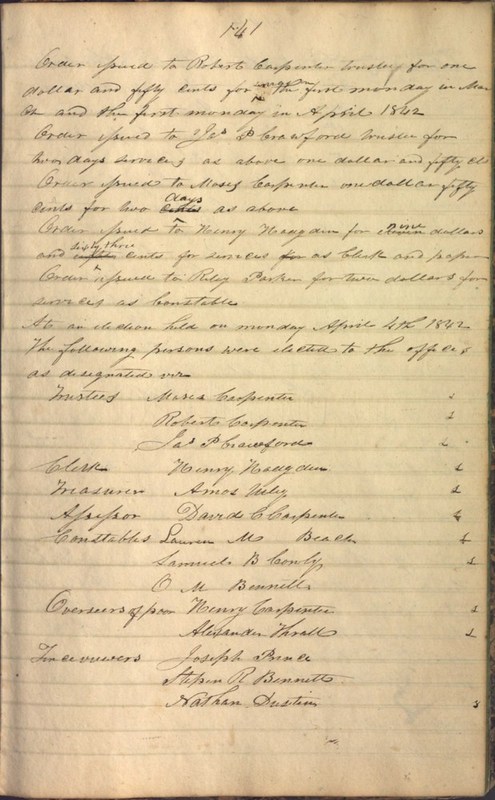 141
Order issued to Robert Carpenter trustee for one
dollar and fifty cents for the first monday in Mar
ch and the first monday in April 1842
Order issued to Jas P Crawford trustee for
two days services as above one dollar and fifty cts
Order issued to Moses Carpenter one dollar fifty
cents for two days as above
Order issued to Henry Hodgden for nine dollars
and sixty three cents for services as Clerk and paper
Order issued to Riley Parker for two dollars for
services as Constable
At an election held on monday April 4th 1842
The following persons were elected to the offices
as designated viz
Trustees Moses Carpenter
Robert Carpenter
Jas P Crawford
Clerk Henry Hodgden
Treasurer Amos Utley
Assessor David C Carpenter
Constables Lauren M Beach
Samuel B Conly
O M Bennett
Overseers of poor Henry Carpenter
Alexander Thrall
Fenceviewers Joseph Prince
Stepen R Bennett
Nathan Dustin